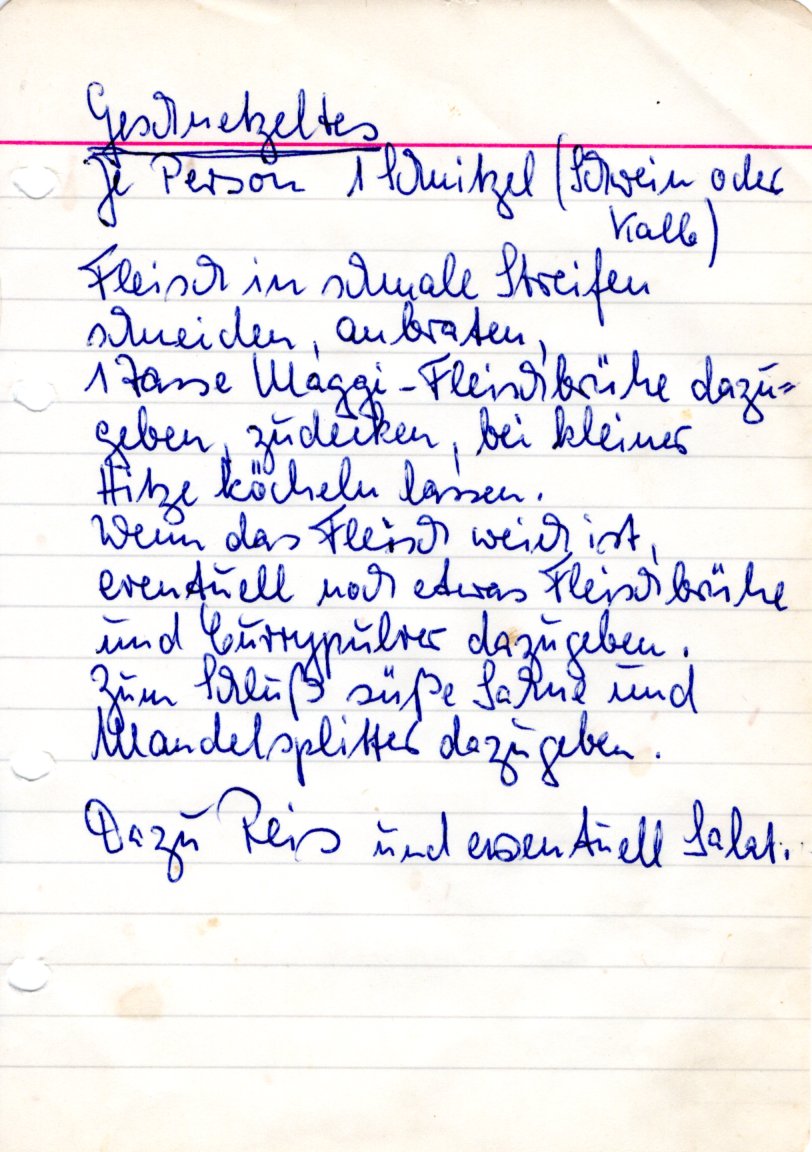 Geschnetzeltes
Je Person 1 Schnitzel (Schwein oder
Kalb)
Fleisch in schmale Streifen
schneiden, anbraten,
1 Tasse Maggi-Fleischbrühe dazu=
geben, zudecken, bei kleiner
Hitze köcheln lassen.
Wenn das Fleisch weich ist,
eventuell noch etwas Fleischbrühe
und Currypulver dazugeben.
Zum Schluß süße Sahne und
Mandelsplitter dazugeben.
Dazu Reis und eventuell Salat.